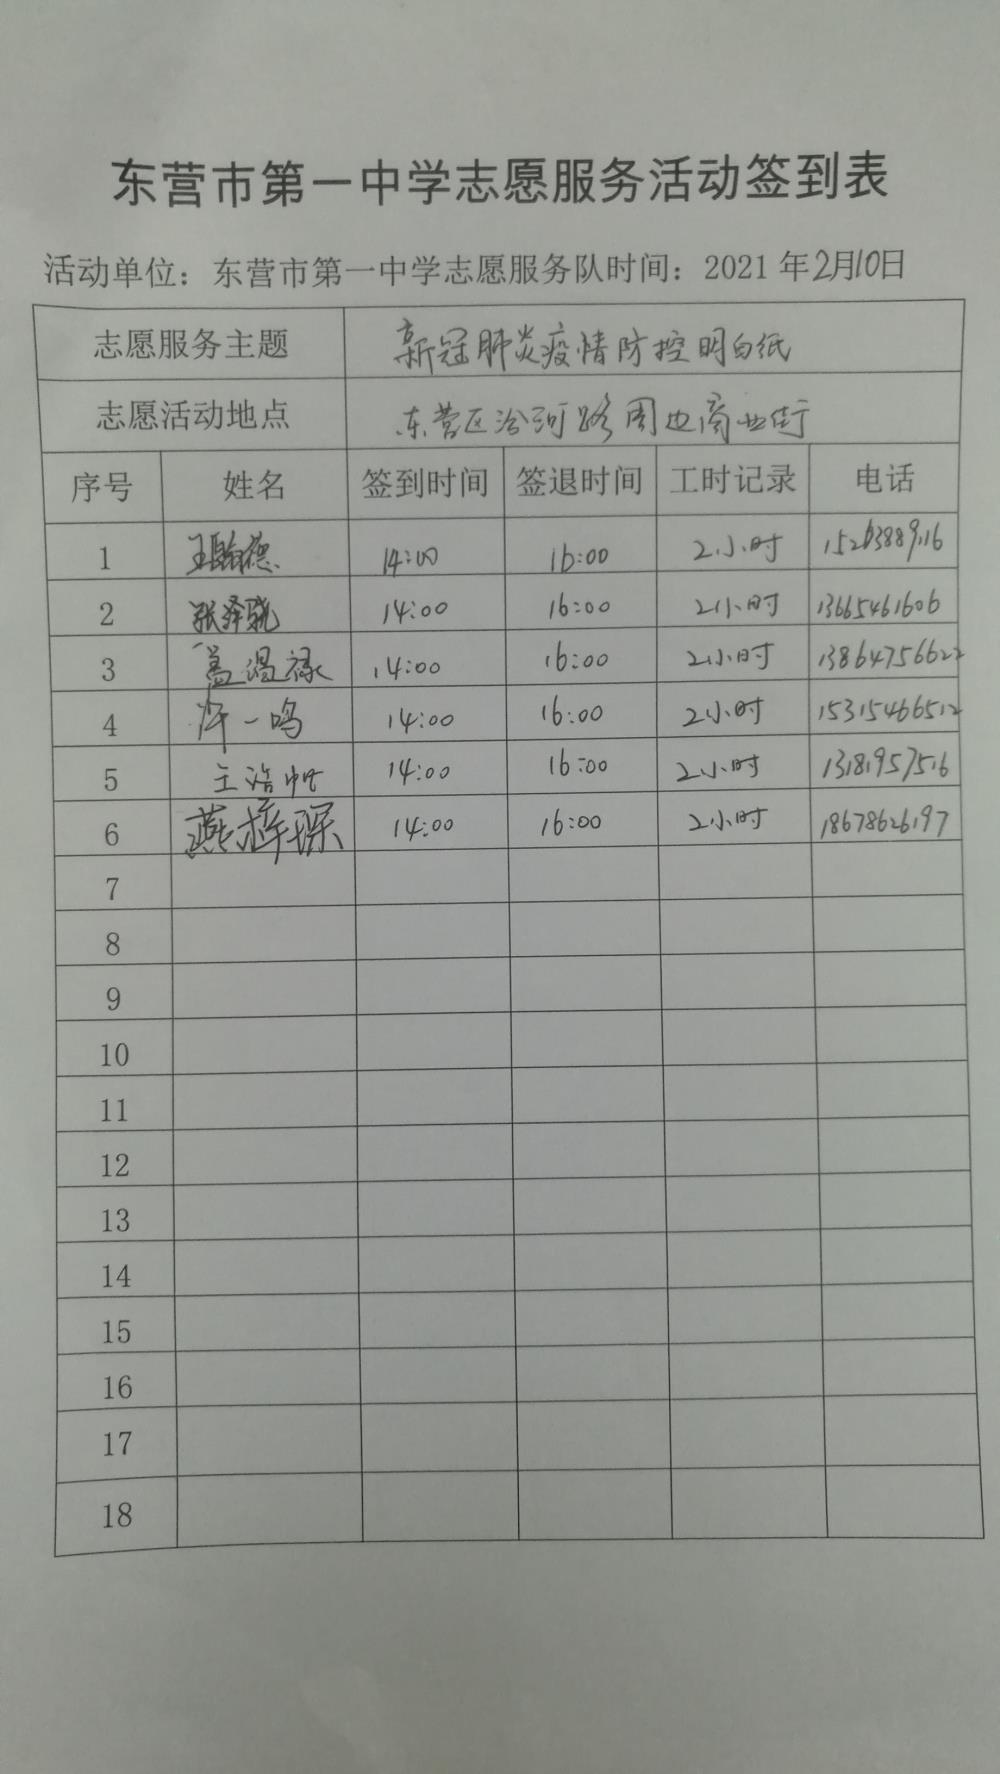 东营市第一中学志愿服务活动签到表
活动单位：东营市第一中学志愿服务队时间：2021年2月10日
志愿服务主题 新冠肺炎疫情防控明白纸
志愿活动地点 东营区汾河路周边商业街
序号 姓名 签到时间 签退时间 工时记录 电话
1 王翰德 14:00 16:00 2小时
2 张泽骁 14:00 16:00 2小时 13665461606
3 盖 禄 14:00 16:00 2小时 13864756622
4 许一鸣 14:00 16:00 2小时 15315466512
5 王浩帆 14:00 16:00 2小时 13181957516
6 燕梓琛 14:00 16:00 2小时 18678626197
7
8
9
10
11
12
13
14
15
16
17
18